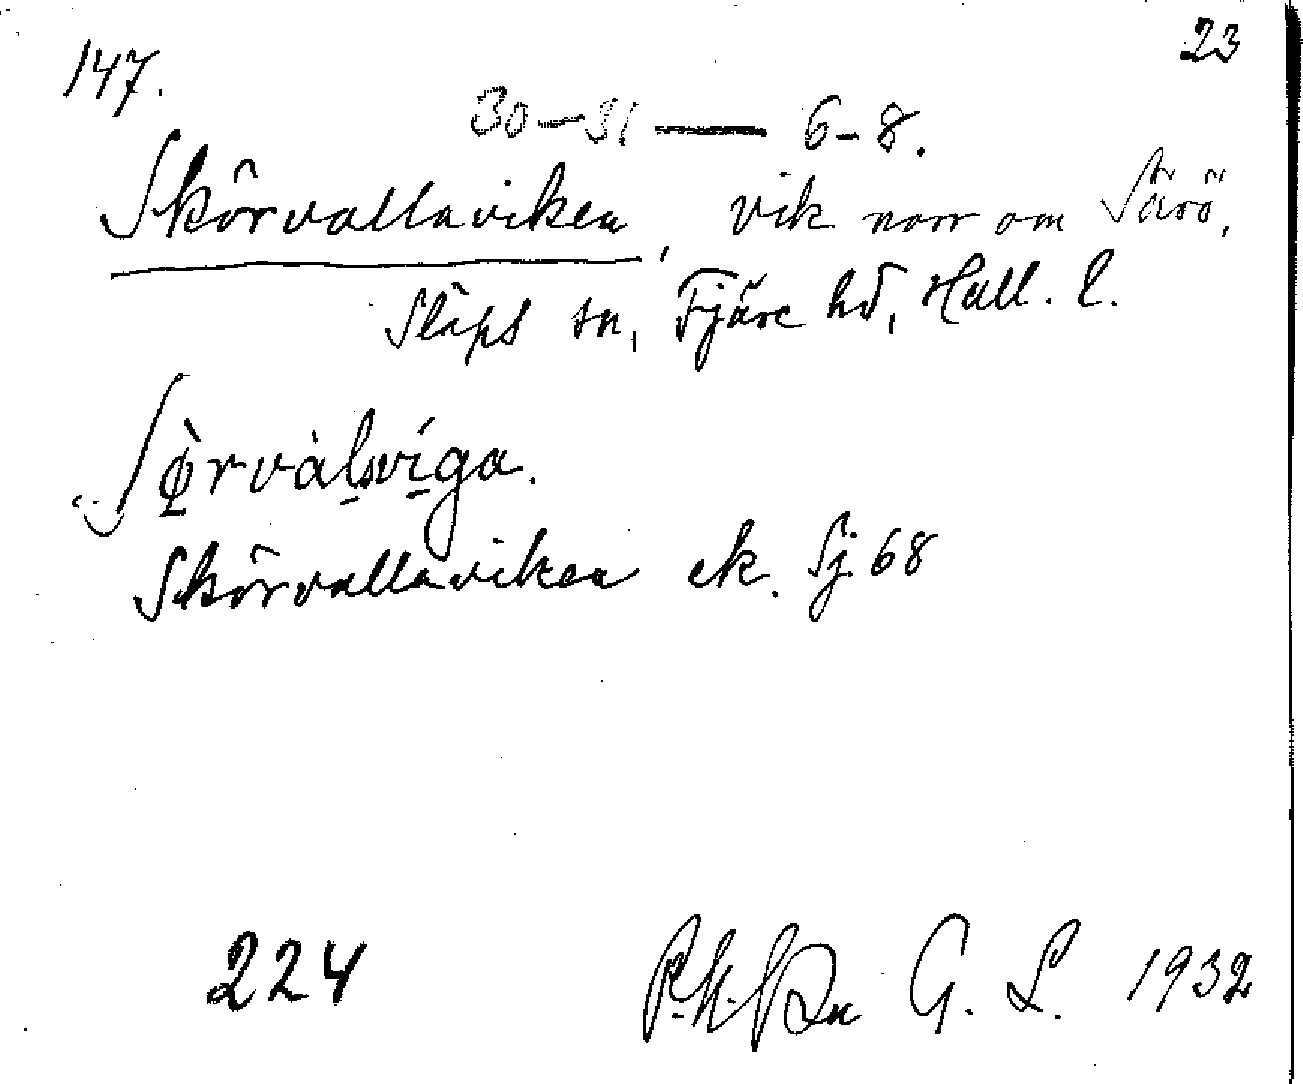 147. 23
30–31 — 6–8.
Skörvallaviken, vik norr om Särö,
Släps sn, Fjäre hd, Hall. l.
Skörvallaviken ek. Sj 68
224 G. L. 1932